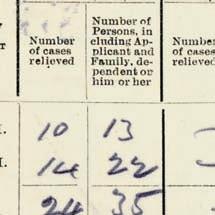 Number of cases relieved
Number of Persons, including Applicant and Family, dependent or him or her
Number of cases
10 13
14 22
24 35